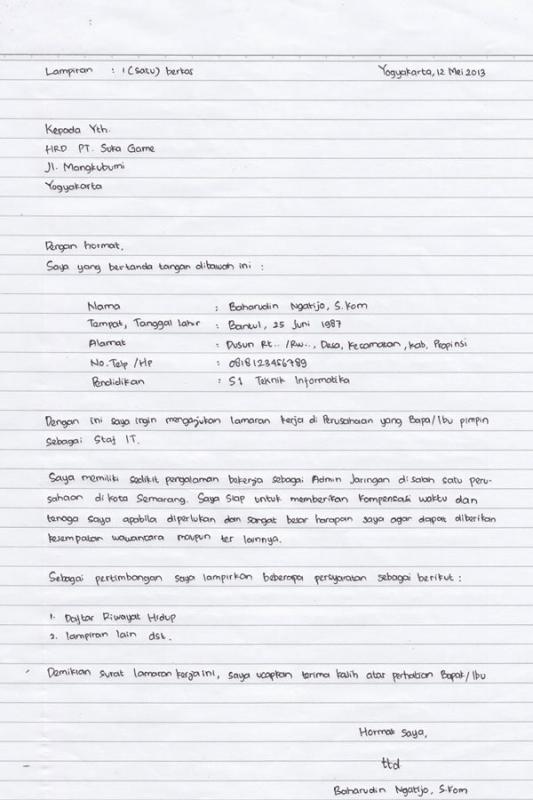 Lampiran : 1 (satu) berkas Yogyakarta, 12 Mei 2013
Kepada Yth.
HRD PT. Suka Game
Jl. Mangkubumi
Yogyakarta
Dengan hormat,
Saya yang bertanda tangan dibawah ini :
Nama : Baharudin Ngatijo, S.Kom
Tempat, Tanggal lahir : Bantul, 25 Juni 1987
Alamat : Dusun Rt.. /Rw.., Desa, Kecamatan, kab, Propinsi
No. Telp /Hp : 0818123456789
Pendidikan : S1 Teknik Informatika
Dengan ini saya ingin mengajukan lamaran kerja di Perusahaan yang Bapa/Ibu pimpin
sebagai Staf IT.
Saya memiliki sedikit pengalaman bekerja sebagai Admin Jaringan di salah satu peru-
sahaan di kota Semarang. Saya siap untuk memberikan kompensasi waktu dan
tenaga saya apabila diperlukan dan sangat besar harapan saya agar dapat diberikan
kesempatan wawancara maupun tes lainnya.
Sebagai pertimbangan saya lampirkan beberapa persyaratan sebagai berikut :
1. Daftar Riwayat Hidup
2. lampiran lain dst.
Demikian surat lamaran kerja ini, saya ucapkan terima kasih atas perhatian Bapak/Ibu
Hormat saya,
ttd
Baharudin Ngatijo, S.Kom